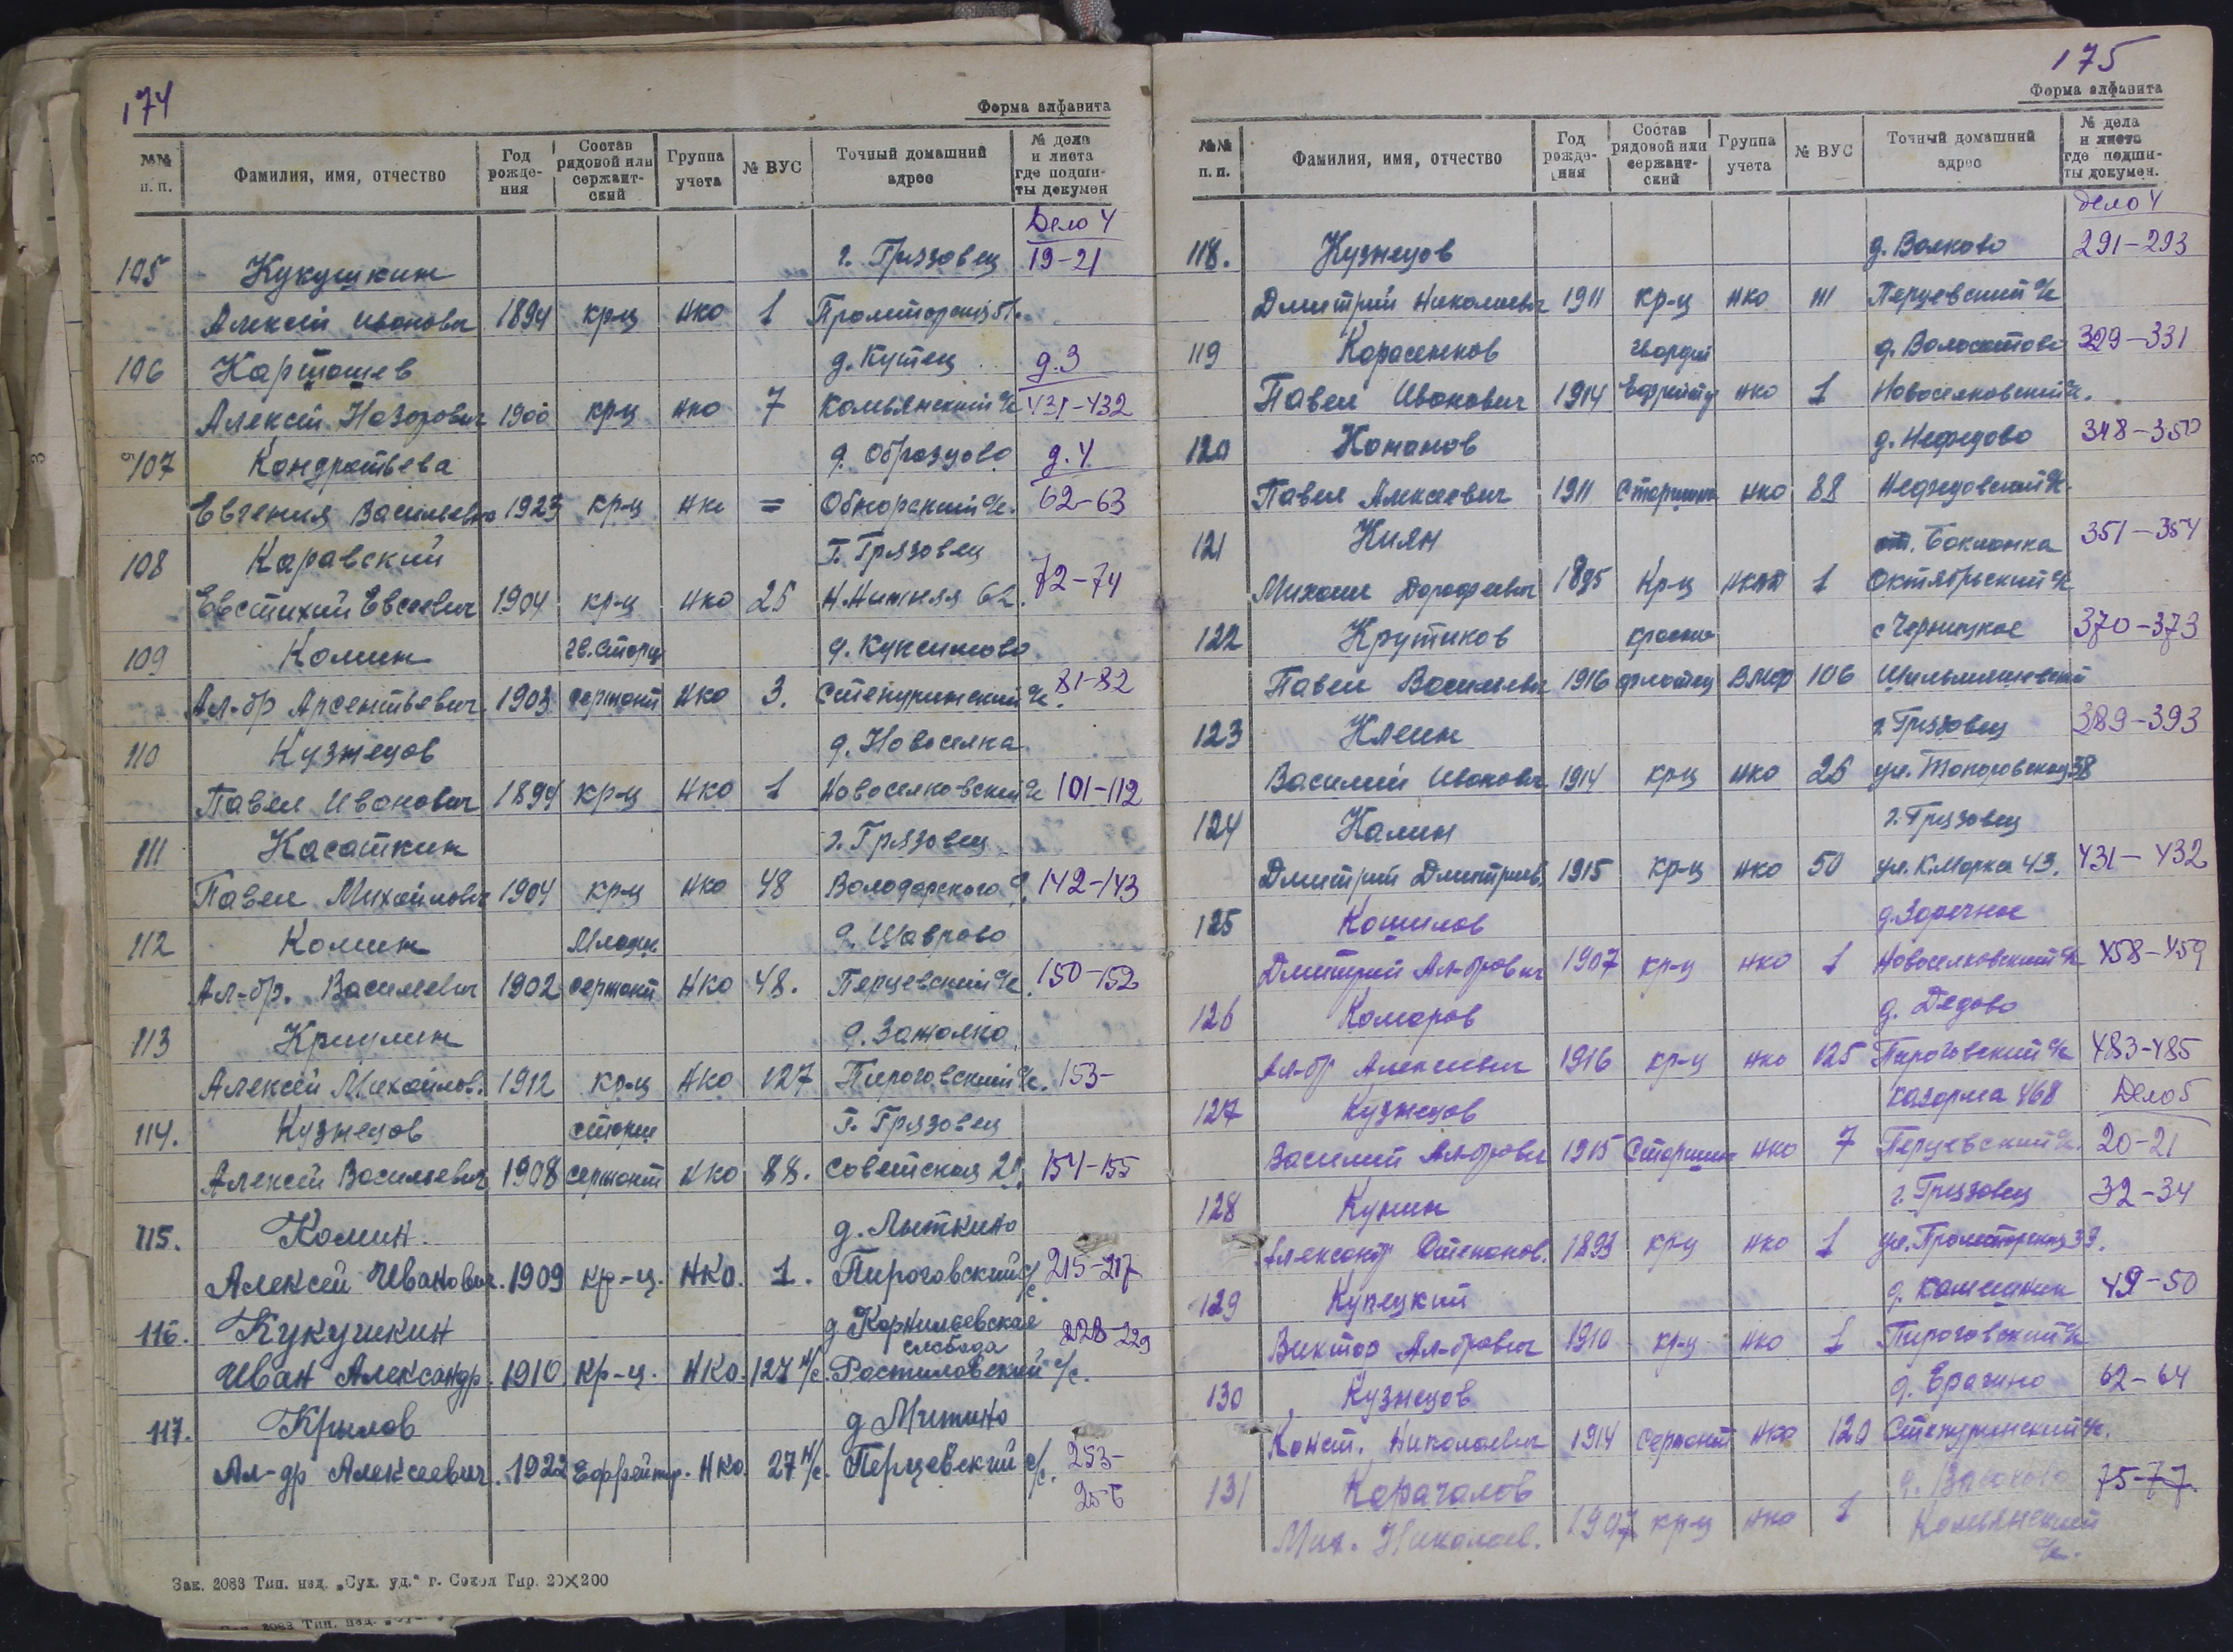 174
Форма алфавита
№№ п. п. Фамилия, имя, отчество Год рождения Состав рядовой или сержантский Группа учета № ВУС Точный домашний адрес № дела и листа где подшиты докумен
Дело 4
105 Кукушкин г. Грязовец 19-21
Алексей Иванович 1894 кр-ц НКО 1
106 Карташев д. Кутец д. 3
Алексей Назарович 1900 кр-ц НКО 7 Комьянский с/с 431-432
107 Кондратьева д. Образцово д. 4
Евгения Васильевна 1923 кр-ц НКО = Обнорский с/с. 62-63
108 Каравский г. Грязовец
Евстихий Евсеевич 1904 кр-ц НКО 25 62. 72-74
109 Комин гв. Старш
Ал-др Арсентьевич 1903 сержант НКО 3. Степуринский с/с. 81-82
110 Кузнецов д. Новоселка
Павел Иванович 1894 кр-ц НКО 1 Новоселковский с/с 101-112
111 Касаткин г. Грязовец
Павел Михайлович 1904 кр-ц НКО 48 Володарского 9. 142-143
112 Комин Младш. д. Щаврово
Ал-др. Васильевич 1902 сержант НКО 48. Перцевский с/с. 150-152
113 д. Зажолка
Алексей Михайлов. 1912 кр-ц НКО 127 Пироговский с/с. 153-
114. Кузнецов старш г. Грязовец
Алексей Васильевич 1908 сержант НКО 88. Советская 21. 154-155
115. Комин. д. Лыткино
Алексей Иванович. 1909 кр-ц. НКО. 1. Пироговский с/с. 215-217
116. Кукушкин д Корнильевская слобода 228-229
Иван Александр. 1910. кр-ц. НКО. 127 н/с. Ростиловский с/с.
117. Крылов д Митино
Ал-др Алексеевич. 1922 Ефрейтор. НКО. 27 н/с. Перцевский с/с. 253-
256
Зак. 2083 Тип. изд. „Сух. уд.“ г. Сокол Тир. 20×200
175
Форма алфавита
№№ п. п. Фамилия, имя, отчество Год рождения Состав рядовой или сержантский Группа учета № ВУС Точный домашний адрес № дела и листа где подшиты докумен.
Дело 4
118. Кузнецов д. Волково 291-293
Дмитрий Николаевич 1911 кр-ц НКО Перцевский с/с
119 Карасенков гвардии 329-331
Павел Иванович 1914 Ефрейтор НКО 1 Новоселковский с/с.
120 Конанов д. Нефедово 348-350
Павел Алексеевич 1911 Старшина НКО 88 Нефедовский с/с.
121 Киян ст. Бакланка 351-354
Михаил Дорофеевич 1895 Кр-ц 1 Октябрьский с/с
122 Крутиков красно с Чернецкое 370-373
Павел Васильевич 1916 флотец ВМФ 106
123 Клеин г Грязовец 389-393
Василий Иванович 1914 кр-ц НКО 26 38
124 Калин г. Грязовец
Дмитрий Дмитриев. 1915 кр-ц НКО 50 ул. К.Маркса 43. 431-432
125 Кошилов д. Заречное
Дмитрий Ал-дрович 1907 кр-ц НКО 1 Новоселковский с/с 458-459
126 Комаров д. Дедово
Ал-др Алексеевич 1916 кр-ц НКО 125 Пироговский с/с 483-485
127 Кузнецов казарма 468 Дело 5
Василий Ал-дрович 1915 Старшина НКО 7 Перцевский с/с. 20-21
128 Кунин г. Грязовец 32-34
Александр Степанов. 1893 кр-ц НКО 1 39.
129 Купецкий 49-50
Виктор Ал-дрович 1910 кр-ц НКО 1 Пироговский с/с
130 Кузнецов 62-64
Конст. Николаевич 1914 сержант НКО 120 Степуринский с/с.
131 Карачалов 75-77.
Мих. Николаев. 1907 кр-ц НКО 1 Комьянский с/с.